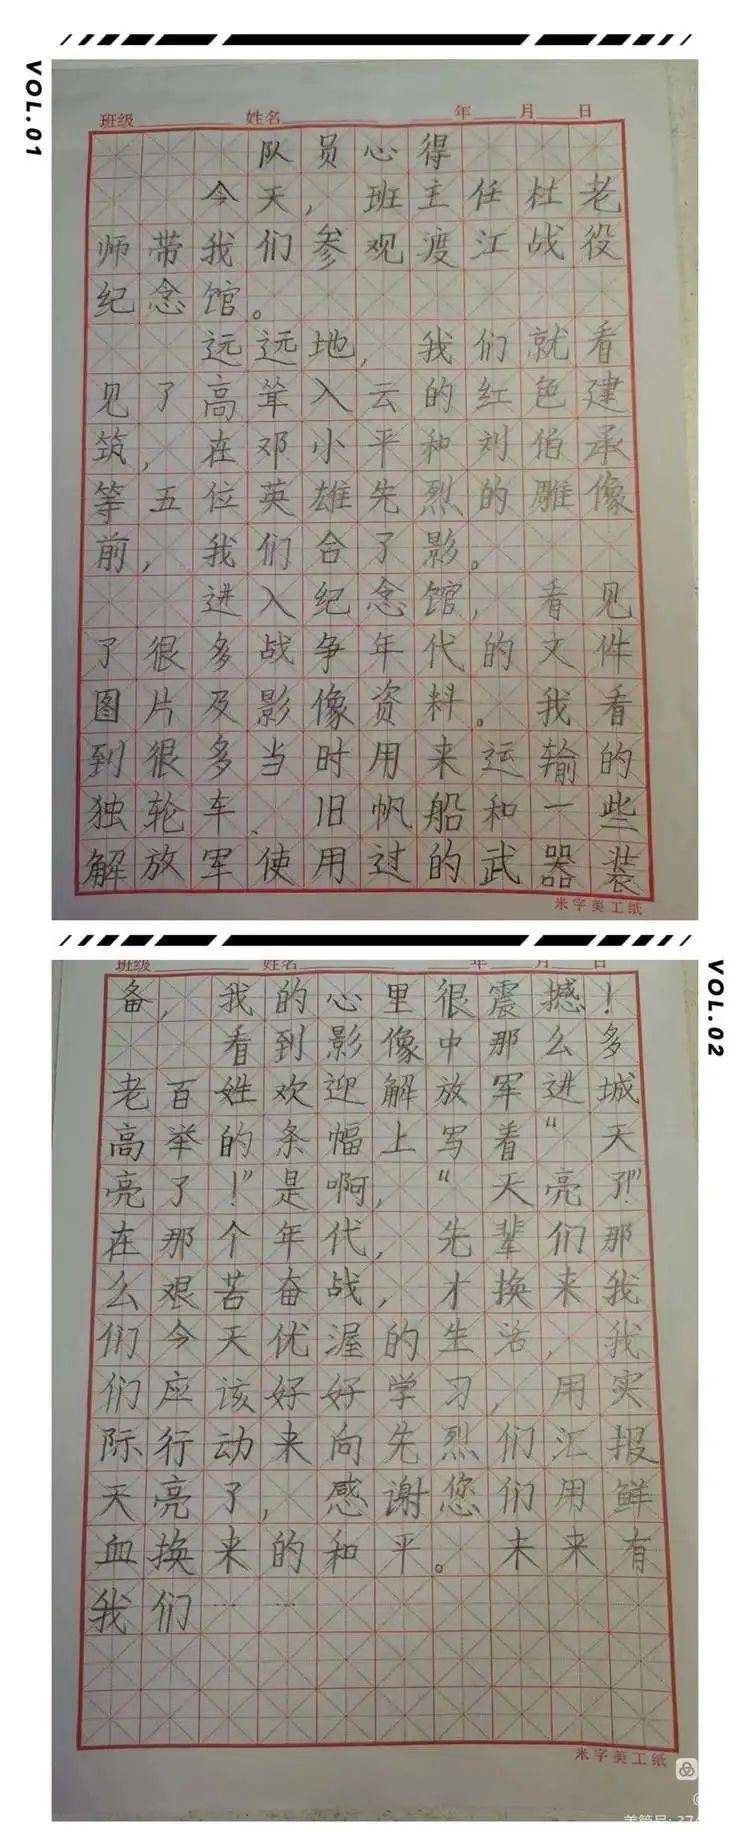 VOL.01
班级 姓名 年 月 日
队员心得
今天，班主任杜老
师带我们参观渡江战役
纪念馆。
远远地，我们就看
见了高耸入云的红色建
筑，在邓小平和刘伯承
等五位英雄先烈的雕像
前，我们合了影。
进入纪念馆，看见
了很多战争年代的文件
图片及影像资料。我看
到很多当时用来运输的
独轮车、旧帆船和一些
解放军使用过的武器装
米字美工纸
VOL.02
班级 姓名 年 月 日
备，我的心里很震撼！
看到影像中那么多
老百姓欢迎解放军进城
高举的条幅上写着“天
亮了！”是啊，“天亮了！”
在那个年代，先辈们那
么艰苦奋战，才换来我
们今天优渥的生活，我
们应该好好学习，用实
际行动来向先烈们汇报
天亮了，感谢您们用鲜
血换来的和平。未来有
我们……
米字美工纸